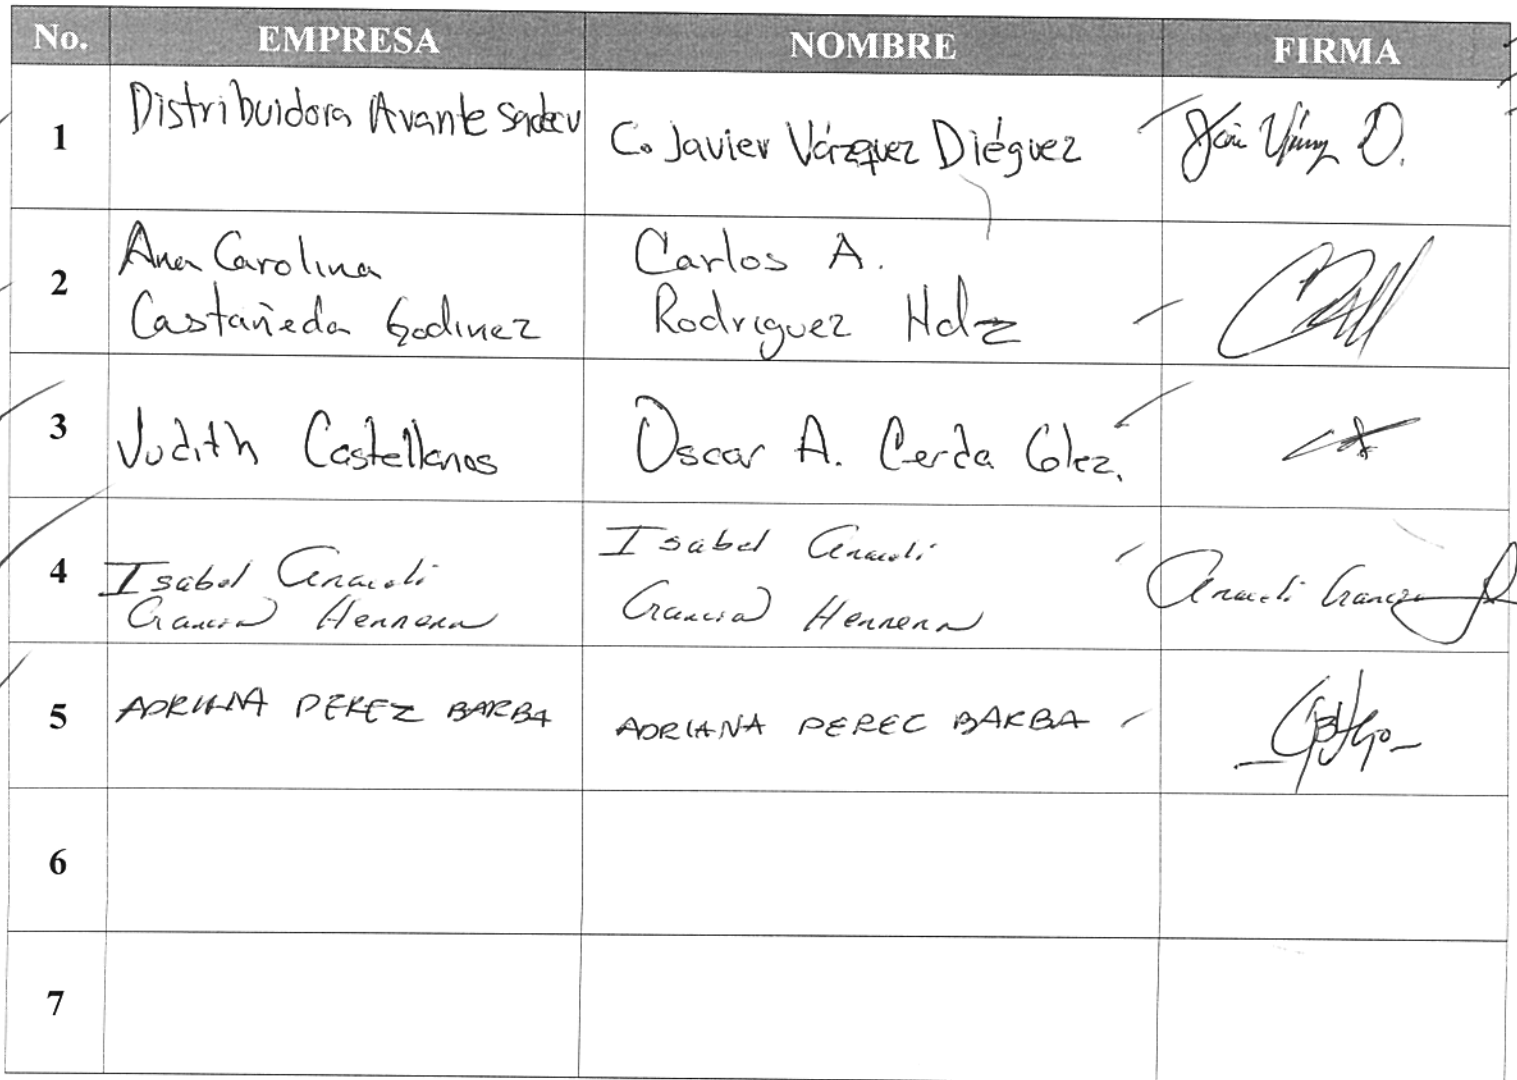 No. EMPRESA NOMBRE FIRMA
1 Distribuidora Avante sadecv C. Javier Vázquez Diéguez
2 Ana Carolina Carlos A.
Castañeda Godinez Rodriguez Hdz
3 Judith Castellanos Oscar A. Cerda Glez.
4 Isabel Araceli Isabel Araceli
Garcia Herrera Garcia Herrera
5 ADRIANA PEREZ BARBA ADRIANA PEREC BARBA
6
7